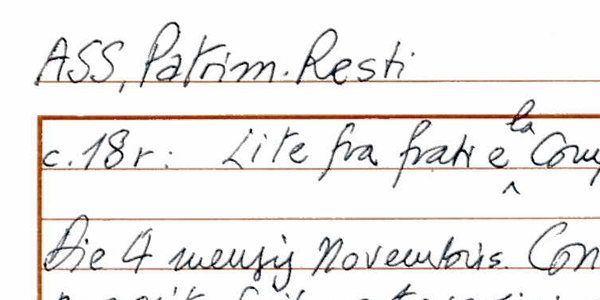 ASS, Patrim. Resti
c. 18r: Lite fra frati e la
Die 4 mensis Novembris.